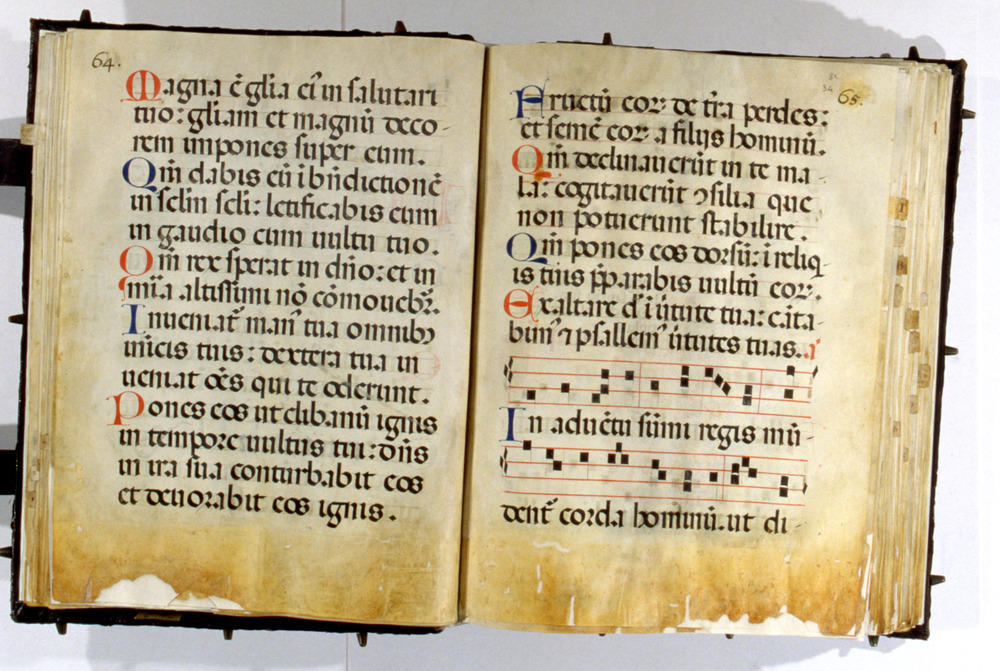 64.
Magna ē gl̄ia ei᷒ in salutari
tuo: gl̄iam et magnū deco-
rem impones super eum.
Qm̄ dabis eū i bn̄dictionē
in sclm̄ scl̄i: letificabis eum
in gaudio cum uultu tuo.
Qm̄ rex sperat in dn̄o: et in
mīa altissimi nō cōmouebr̄.
Inueniat᷑ man᷒ tua omnibꝫ
inīcis tuis: dextera tua in
ueniat oēs qui te oderunt.
Pones eos ut clibanū ignis
in tempore uultus tui: dn̄s
in ira sua conturbabit eos
et deuorabit eos ignis.
65.
Fructū eoꝝ de tr̄a perdes:
et semē eoꝝ a filijs hominū.
Qm̄ declinauerūt in te ma-
la: cogitauerūt ꝯsilia que
non potuerunt stabilire.
Qm̄ pones eos dorsū: i reliq-
is tuis p̄parabis uultū eoꝝ.
Exaltare dn̄e ī u̇tute tua: cāta-
bim᷒ ⁊ psallem᷒ u̇tutes tuas. a᷒
In aduētu sūmi regis mū-
dent᷑ corda hominū. ut di-